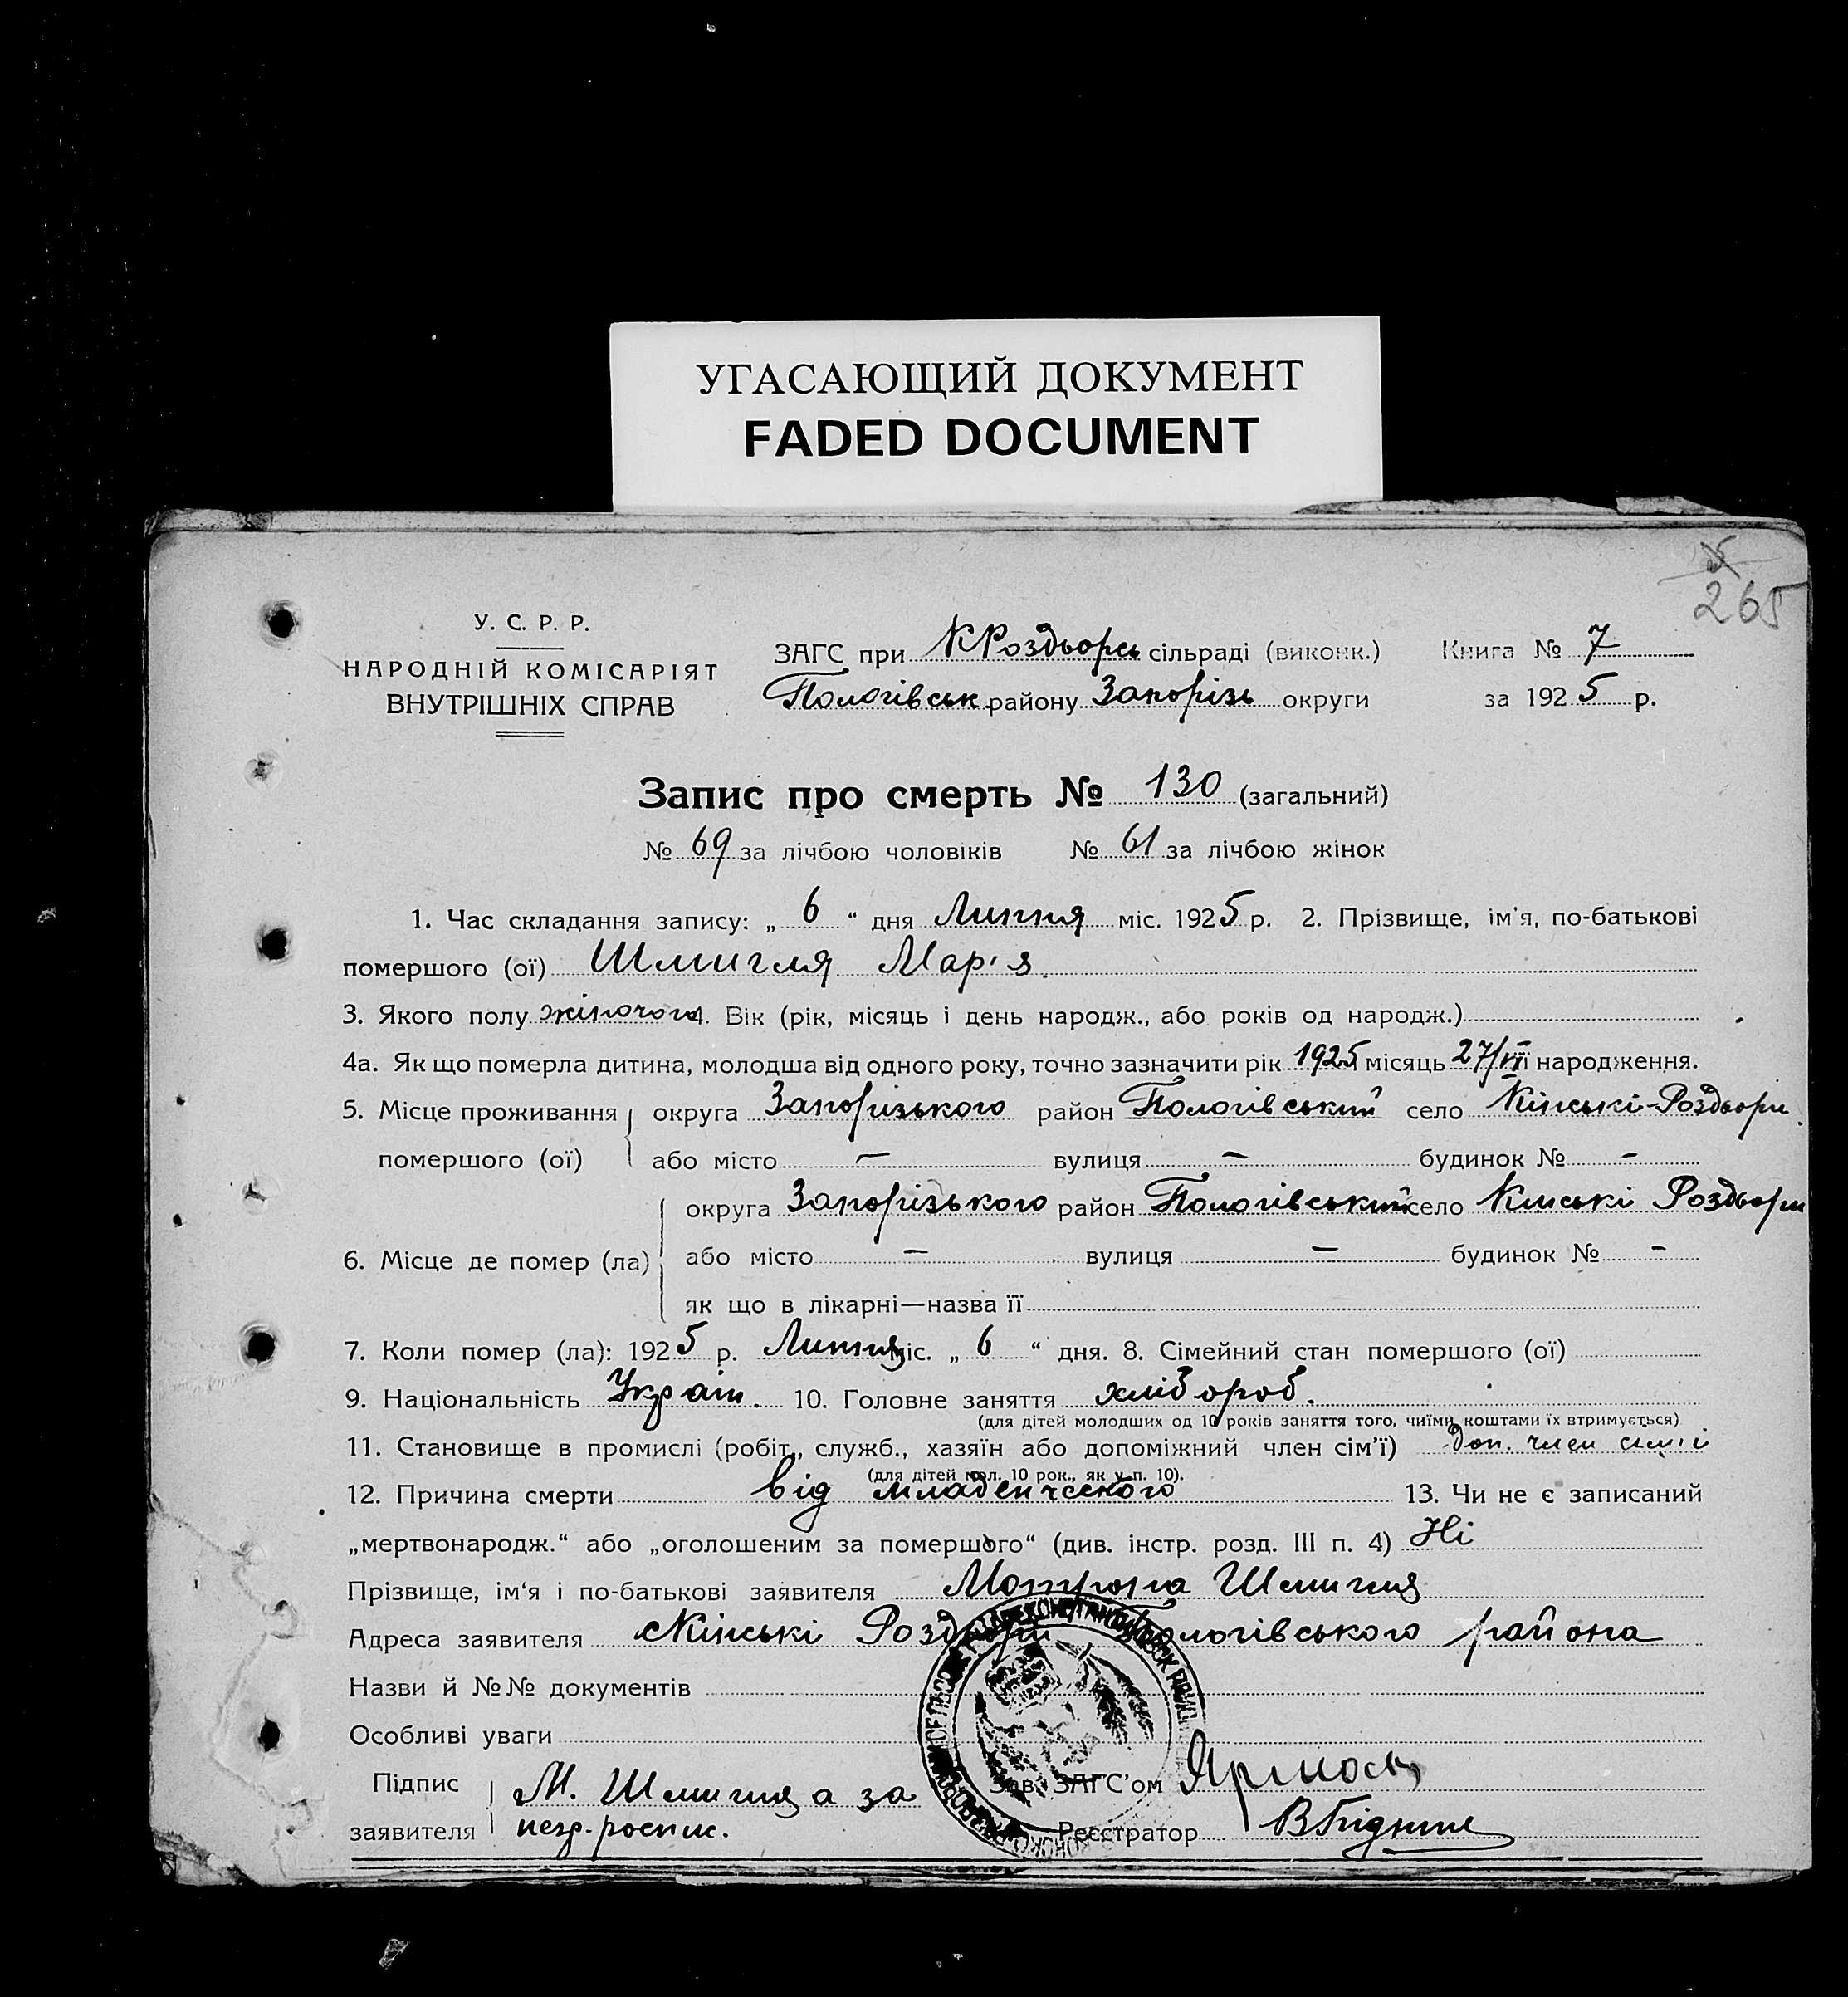 УГАСАЮЩИЙ ДОКУМЕНТ
FADED DOCUMENT
265
У. С. Р. Р.
НАРОДНІЙ КОМІСАРІЯТ
ВНУТРІШНІХ СПРАВ
ЗАГС при КРоздьорсь сільраді (виконк.) Книга № 7
Пологівськ району Запорізь округи за 1925 р.
Запис про смерть № 130 (загальний)
№ 69 за лічбою чоловіків № 61 за лічбою жінок
1. Час складання запису: „ 6 “ дня Липня міс. 1925 р. 2. Прізвище, ім'я, по-батькові
помершого (ої) Шмигля Мар'я.
3. Якого полу жіночого 4. Вік (рік, місяць і день народж., або років од народж.)
4а. Як що померла дитина, молодша від одного року, точно зазначити рік 1925 місяць 27/VI її народження.
5. Місце проживання округа Запорізького район Пологівський село Кінські-Роздьори.
помершого (ої) або місто — вулиця — будинок № -
округа Запорізького район Пологівський село Кінські Роздьори
6. Місце де помер (ла) або місто — вулиця — будинок № -
як що в лікарні—назва її
7. Коли помер (ла): 1925 р. Липня міс. „ 6 “ дня. 8. Сімейний стан помершого (ої)
9. Національність Україн. 10. Головне заняття хлібороб.
(для дітей молодших од 10 років заняття того, чиїми коштами їх втримується)
11. Становище в промислі (робіт., служб., хазяїн або допоміжний член сім'ї) доп. член сімьї
(для дітей мол. 10 рок., як у п. 10).
12. Причина смерти від младенчеського 13. Чи не є записаний
„мертвонародж.“ або „оголошеним за помершого“ (див. інстр. розд. III п. 4) Ні
Прізвище, ім'я і по-батькові заявителя Мотрона Шмигля
Адреса заявителя Кінські Роздьори Пологівського района
Назви й №№ документів
Особливі уваги
Підпис М. Шмигля а за Зав. ЗАГС'ом
заявителя негр. роспис. Реєстратор